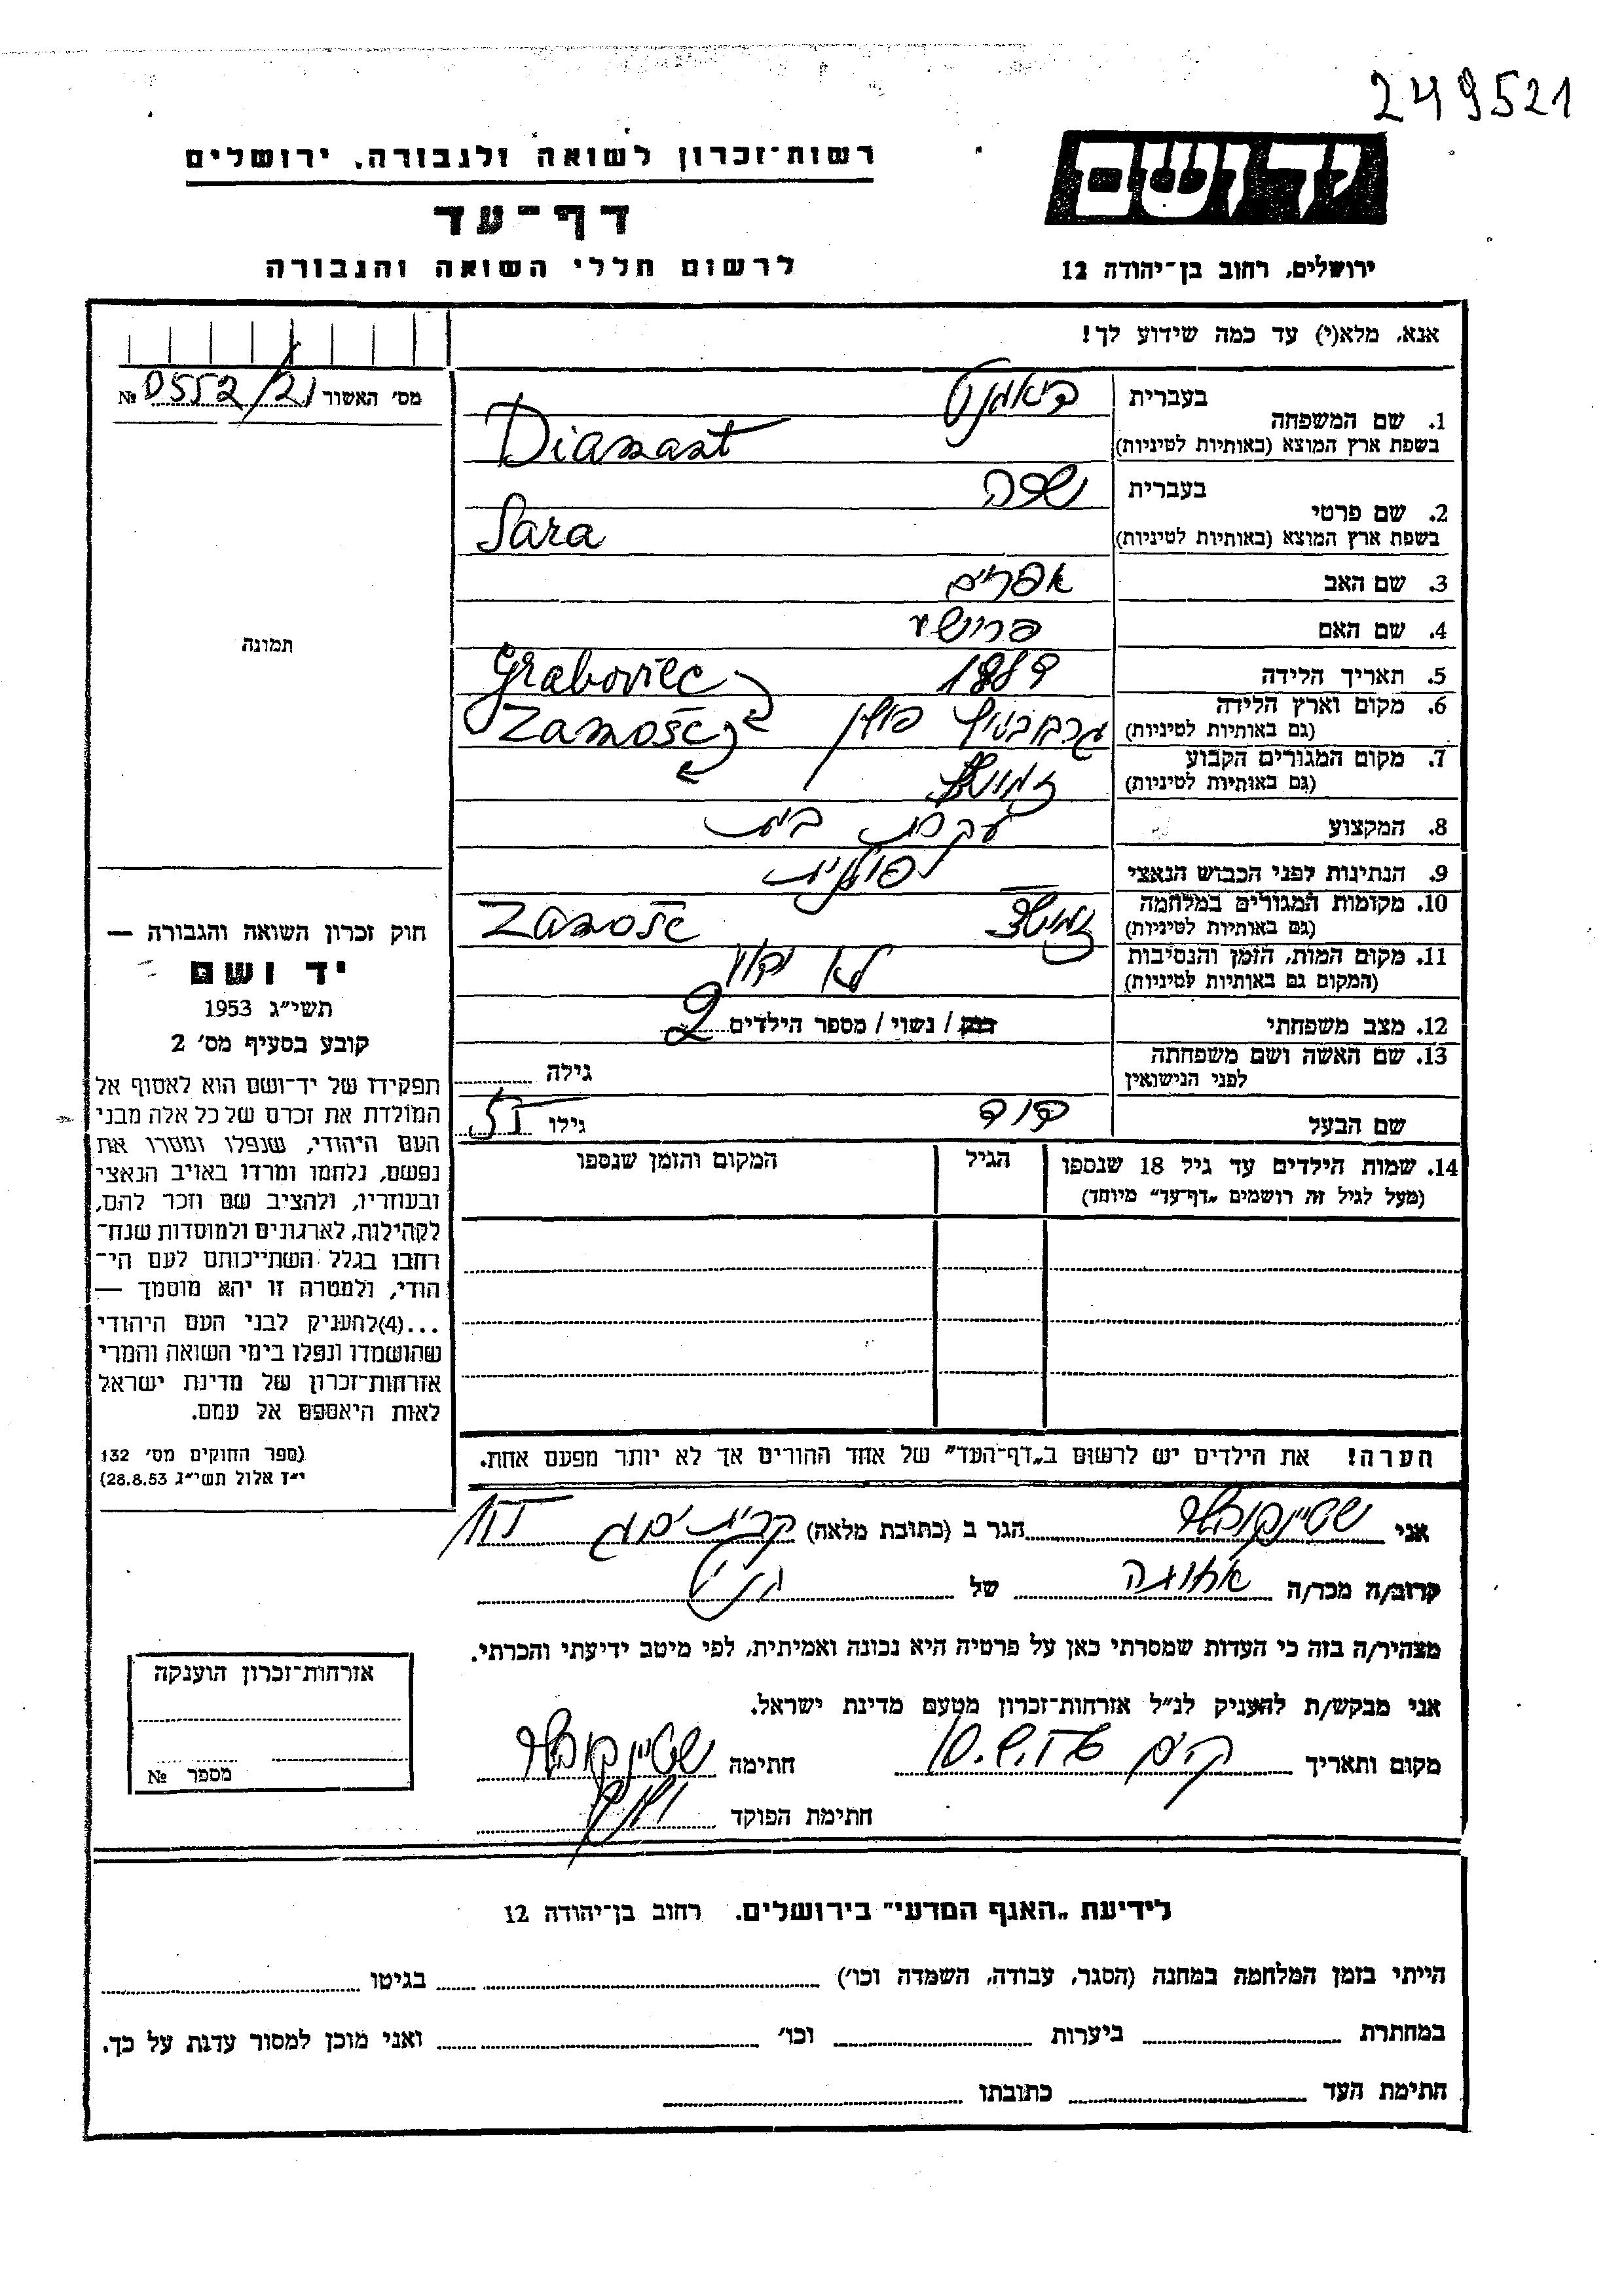 249521
יד ושם
ירושלים, רחוב בן־יהודה 12
רשות־זכרון לשואה ולגבורה, ירושלים
דף־עד
לרשום חללי השואה והגבורה
אנא, מלא(י) עד כמה שידוע לך!
מס׳ האשור 0552/21 №
תמונה
1. שם המשפחה
בעברית דיאמנט
בשפת ארץ המוצא (באותיות לטיניות) Diamant
2. שם פרטי
בעברית שרה
בשפת ארץ המוצא (באותיות לטיניות) Sara
3. שם האב אפרים
4. שם האם
5. תאריך הלידה 1889
6. מקום וארץ הלידה פולין Graboviec
(גם באותיות לטיניות) Zamość
7. מקום המגורים הקבוע
(גם באותיות לטיניות)
8. המקצוע עקרת בית
9. הנתינות לפני הכבוש הנאצי פולנית
10. מקומות המגורים במלחמה Zamość
(גם באותיות לטיניות)
11. מקום המות, הזמן והנסיבות לא ידוע
(המקום גם באותיות לטיניות)
12. מצב משפחתי רווק / נשוי / מספר הילדים 2
13. שם האשה ושם משפחתה
לפני הנישואין גילה
שם הבעל דוד גילו 51
14. שמות הילדים עד גיל 18 שנספו הגיל המקום והזמן שנספו
(מעל לגיל זה רושמים „דף־עד״ מיוחד)
הערה! את הילדים יש לרשום ב„דף־העד״ של אחד ההורים אך לא יותר מפעם אחת.
חוק זכרון השואה והגבורה —
יד ושם
תשי״ג 1953
קובע בסעיף מס׳ 2
תפקידו של יד־ושם הוא לאסוף אל
המולדת את זכרם של כל אלה מבני
העם היהודי, שנפלו ומסרו את
נפשם, נלחמו ומרדו באויב הנאצי
ובעוזריו, ולהציב שם וזכר להם,
לקהילות, לארגונים ולמוסדות שנח־
רבו בגלל השתייכותם לעם הי־
הודי, ולמטרה זו יהא מוסמך —
...(4)להעניק לבני העם היהודי
שהושמדו ונפלו בימי השואה והמרי
אזרחות־זכרון של מדינת ישראל
לאות היאספם אל עמם.
(ספר החוקים מס׳ 132
י״ז אלול תשי״ג 28.8.53)
אני הגר ב (כתובת מלאה) קרית ים
קרוב/ה מכר/ה של
מצהיר/ה בזה כי העדות שמסרתי כאן על פרטיה היא נכונה ואמיתית, לפי מיטב ידיעתי והכרתי.
אני מבקש/ת להעניק לנ״ל אזרחות־זכרון מטעם מדינת ישראל.
מקום ותאריך חתימה
חתימת הפוקד
אזרחות־זכרון הוענקה
מספר №
לידיעת „האגף המדעי״ בירושלים. רחוב בן־יהודה 12
הייתי בזמן המלחמה במחנה (הסגר, עבודה, השמדה וכו׳) בגיטו
במחתרת ביערות וכו׳ ואני מוכן למסור עדות על כך.
חתימת העד כתובתו